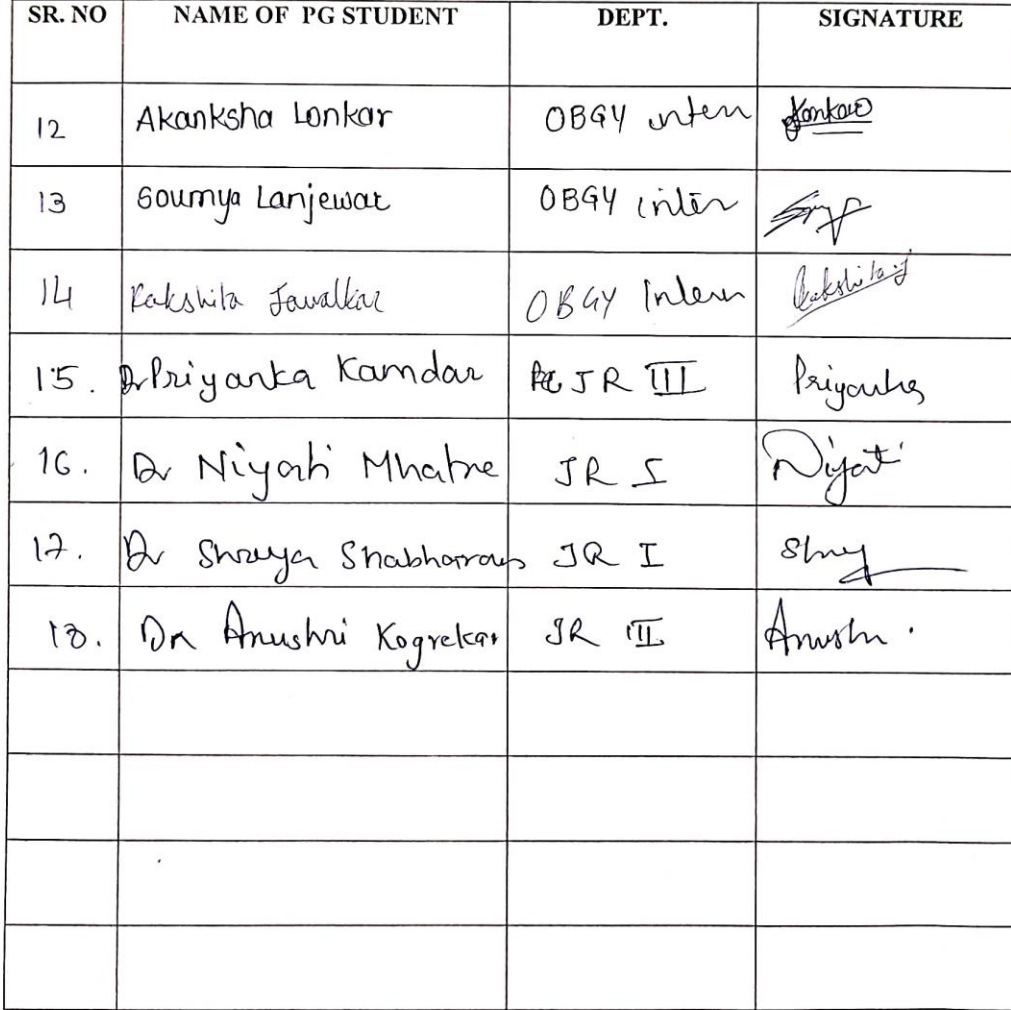 SR. NO NAME OF PG STUDENT DEPT. SIGNATURE
12 Akanksha Lonkar OBGY intern Lonkar
13 Soumya Lanjewar OBGY inter
14 Rakshita Jawalkar OBGY Intern Rakshita J
15. Dr Priyanka Kamdar JR III Priyanka
16. Dr Niyati Mhatre JR I Niyati
17. Dr Shreya JR I Shrey
18. Dr Anushri Kogrekar JR III Anushri